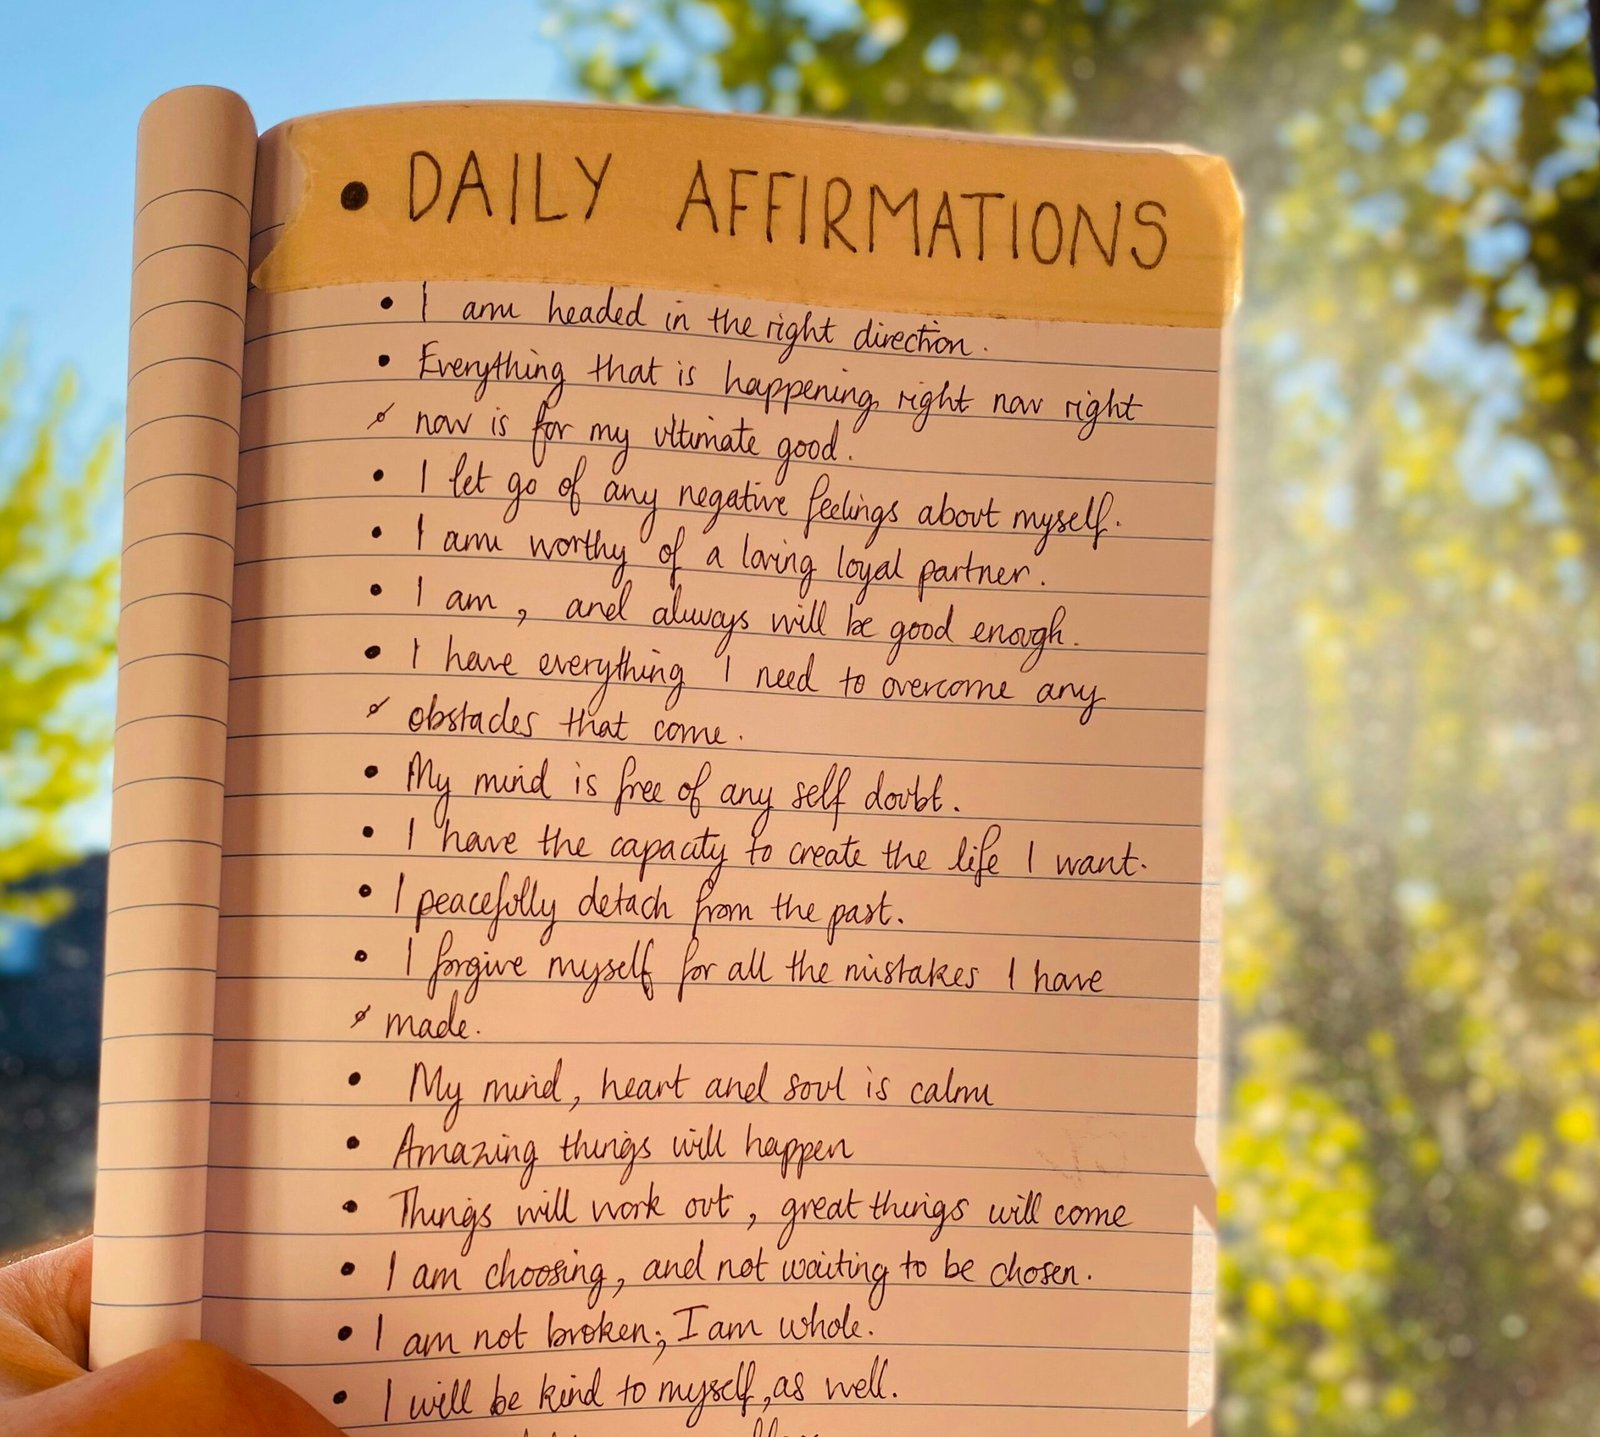 • DAILY AFFIRMATIONS
• I am headed in the right direction.
• Everything that is happening right now right
now is for my ultimate good.
• I let go of any negative feelings about myself.
• I am worthy of a loving loyal partner.
• I am, and always will be good enough.
• I have everything I need to overcome any
obstacles that come.
• My mind is free of any self doubt.
• I have the capacity to create the life I want.
• I peacefully detach from the past.
• I forgive myself for all the mistakes I have
made.
• My mind, heart and soul is calm
• Amazing things will happen
• Things will work out, great things will come
• I am choosing, and not waiting to be chosen.
• I am not broken; I am whole.
• I will be kind to myself, as well.